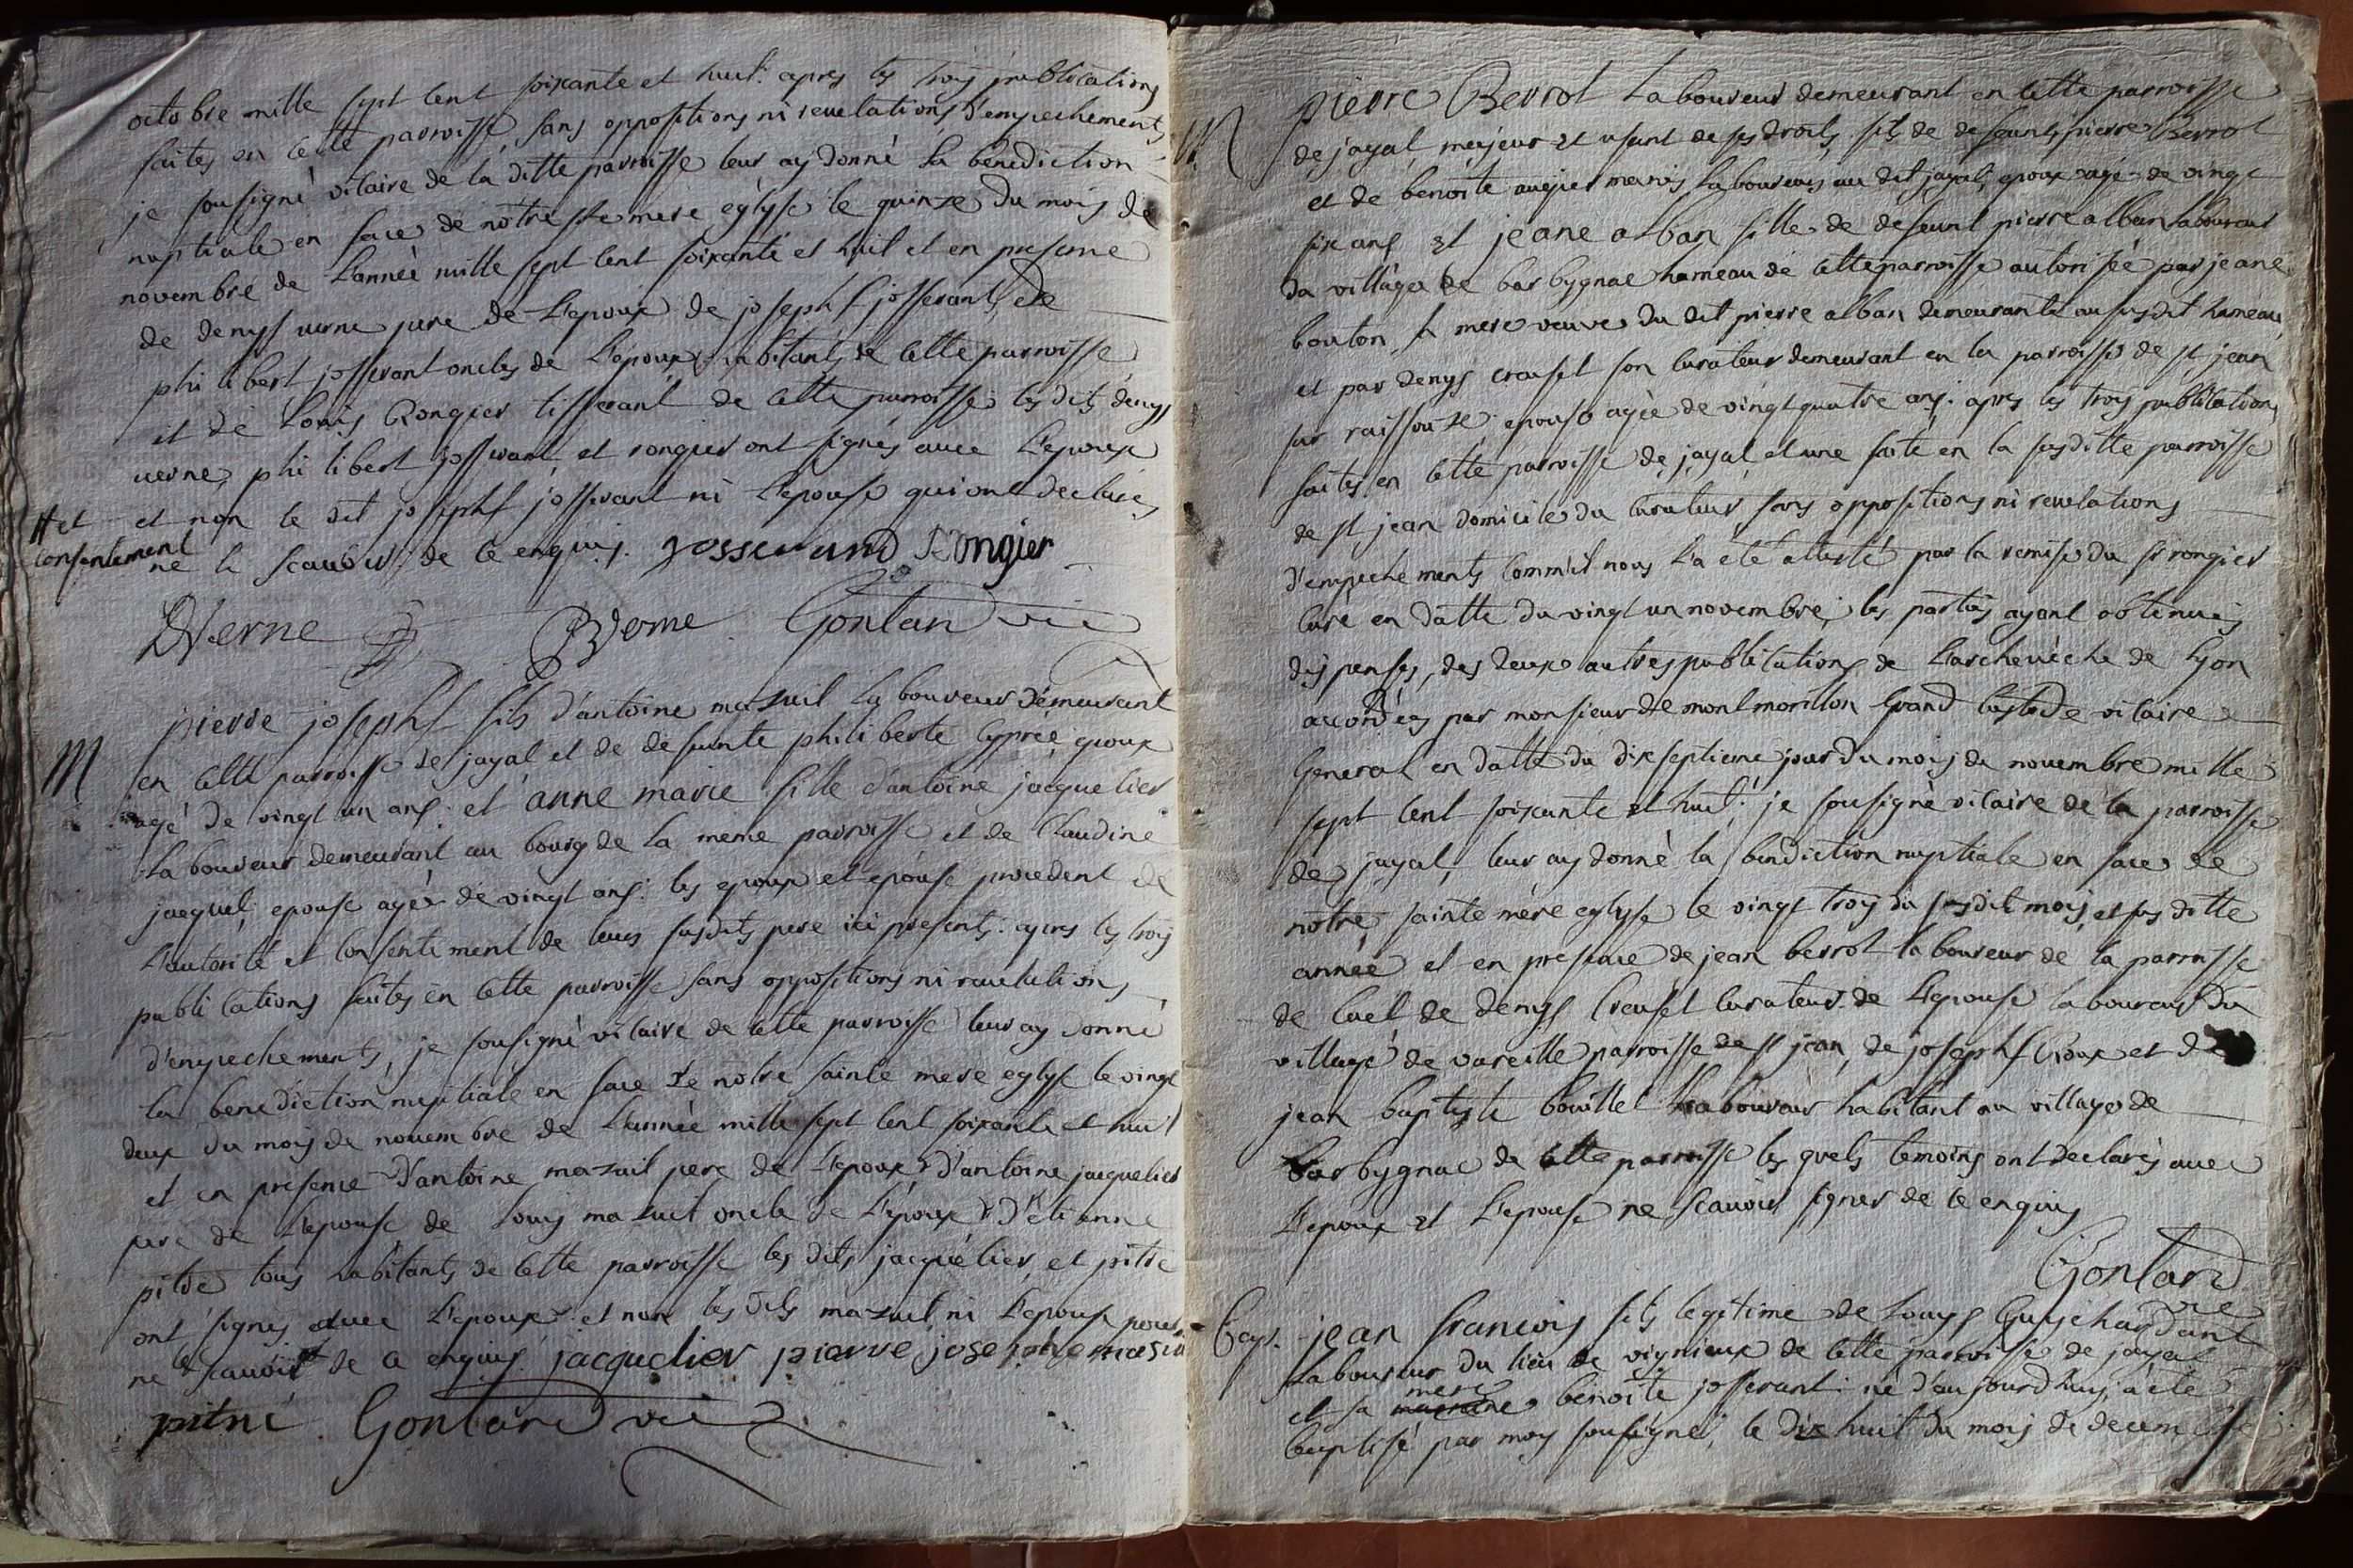 octobre mille sept cent soixante et huit. apres les trois publications
faites en cette parroisse, sans oppositions ni revelations d'empechements
je sousigné vicaire de la ditte parroisse leur ay donné la benediction
nuptiale en face de notre ste mere eglyse le quinze du mois de
novembre de l'année mille sept cent soixante et huit et en presence
de denys verne pere de l'epoux de josephs josserant, de
philibert josserant oncles de l'epoux habitants de cette parroisse
et de Louis Rongier tisserant de cette parroisse les dits denys
verne, philibert josserant et rongier ont signés avec l'epoux
et non le dit josephs josserant ni l'epouse qui ont declarés
# et consentement
ne le scavoir de ce enquis. josserand Rongier
DVerne Verne Gontard vic
M
pierre josephs fils d'antoine mazuil laboureur demeurant
en cette parroisse de jayat et de defunte philiberte cyprée epoux
agé de vingt un ans. et anne marie fille d'antoine jacquelier
laboureur demeurant au bourg de la meme parroisse et de Claudine
jacquet; epouse agée de vingt ans: les epoux et epouse procedent de
l'autorité et consentement de leurs susdits pere ici presents: apres les trois
publications faites en cette parroisse sans oppositions ni revelations
d'empechements, je sousigné vicaire de cette parroisse leur ay donné
la benediction nuptiale en face de notre sainte mere eglyse le vingt
deux du mois de novembre de l'année mille sept cent soixante et huit
et en presence d'antoine mazuil pere de l'epoux, d'antoine jacquelier
pere de l'epouse de Louis mazuil oncle de l'epoux d'etienne
pitre tous habitants de cette parroisse les dits jacquelier, et pitre
ont signés avec l'epoux et non les dits mazuil ni l'epouse pour
ne scavoir de ce enquis. jacquelier pierre josephe masui
pitre Gontard vic
M
pierre Berrot Laboureur demeurant en cette parroisse
de jayat, majeur et usant de ses droits, fils de defunts pierre Berrot
et de benoite augier mariés laboureurs au dit jayat; epoux agé de vingt
six ans et jeane alban fille de defunt pierre alban laboureur
du village de barbygnac hameau de cette parroisse autorisée par jeane
bouton sa mere veuve du dit pierre alban demeurante au susdit hameau
et par denys creuset son curateur demeurant en la parroisse de st jean
sur raissouze, epouse agée de vingt quatre ans: apres les trois publications
faites en cette parroisse de jayat, et une faite en la susditte parroisse
de st jean domicile du curateur sans oppositions ni revelations
d'empechements comm'il nous l'a eté attesté par la remise du sr rongier
curé en datte du vingt un novembre; les parties ayant obtenues
dispenses, des deux autres publications de l'archevéché de Lyon
accordées par monsieur de montmorillon Grand custode vicaire
General en datte du dixseptieme jour du mois de novembre mille
sept cent soixante et huit; je sousigné vicaire de la parroisse
de jayat, leur ay donné la benediction nuptiale en face de
notre sainte mere eglyse le vingt trois du susdit mois, et susditte
année et en presence de jean berrot laboureur de la parroisse
de cuet de denys Creuset curateur de l'epouse laboureur du
village de vareille parroisse de st jean, de josephs Croux et de
jean baptiste bouillet laboureur habitant au village de
barbygnac de cette parroisse les quels temoins ont declarés avec
l'epoux et l'epouse ne scavoir signer de ce enquis
Gontard vic
Bap.
jean francois fils legitime de Louys Guychardant
laboureur du lieu de vignieux de cette parroisse de jayat
et sa mere benoite josserant: né d'aujourdhuy, a eté
baptisé par moy sousigné, le dix huit du mois de decembre